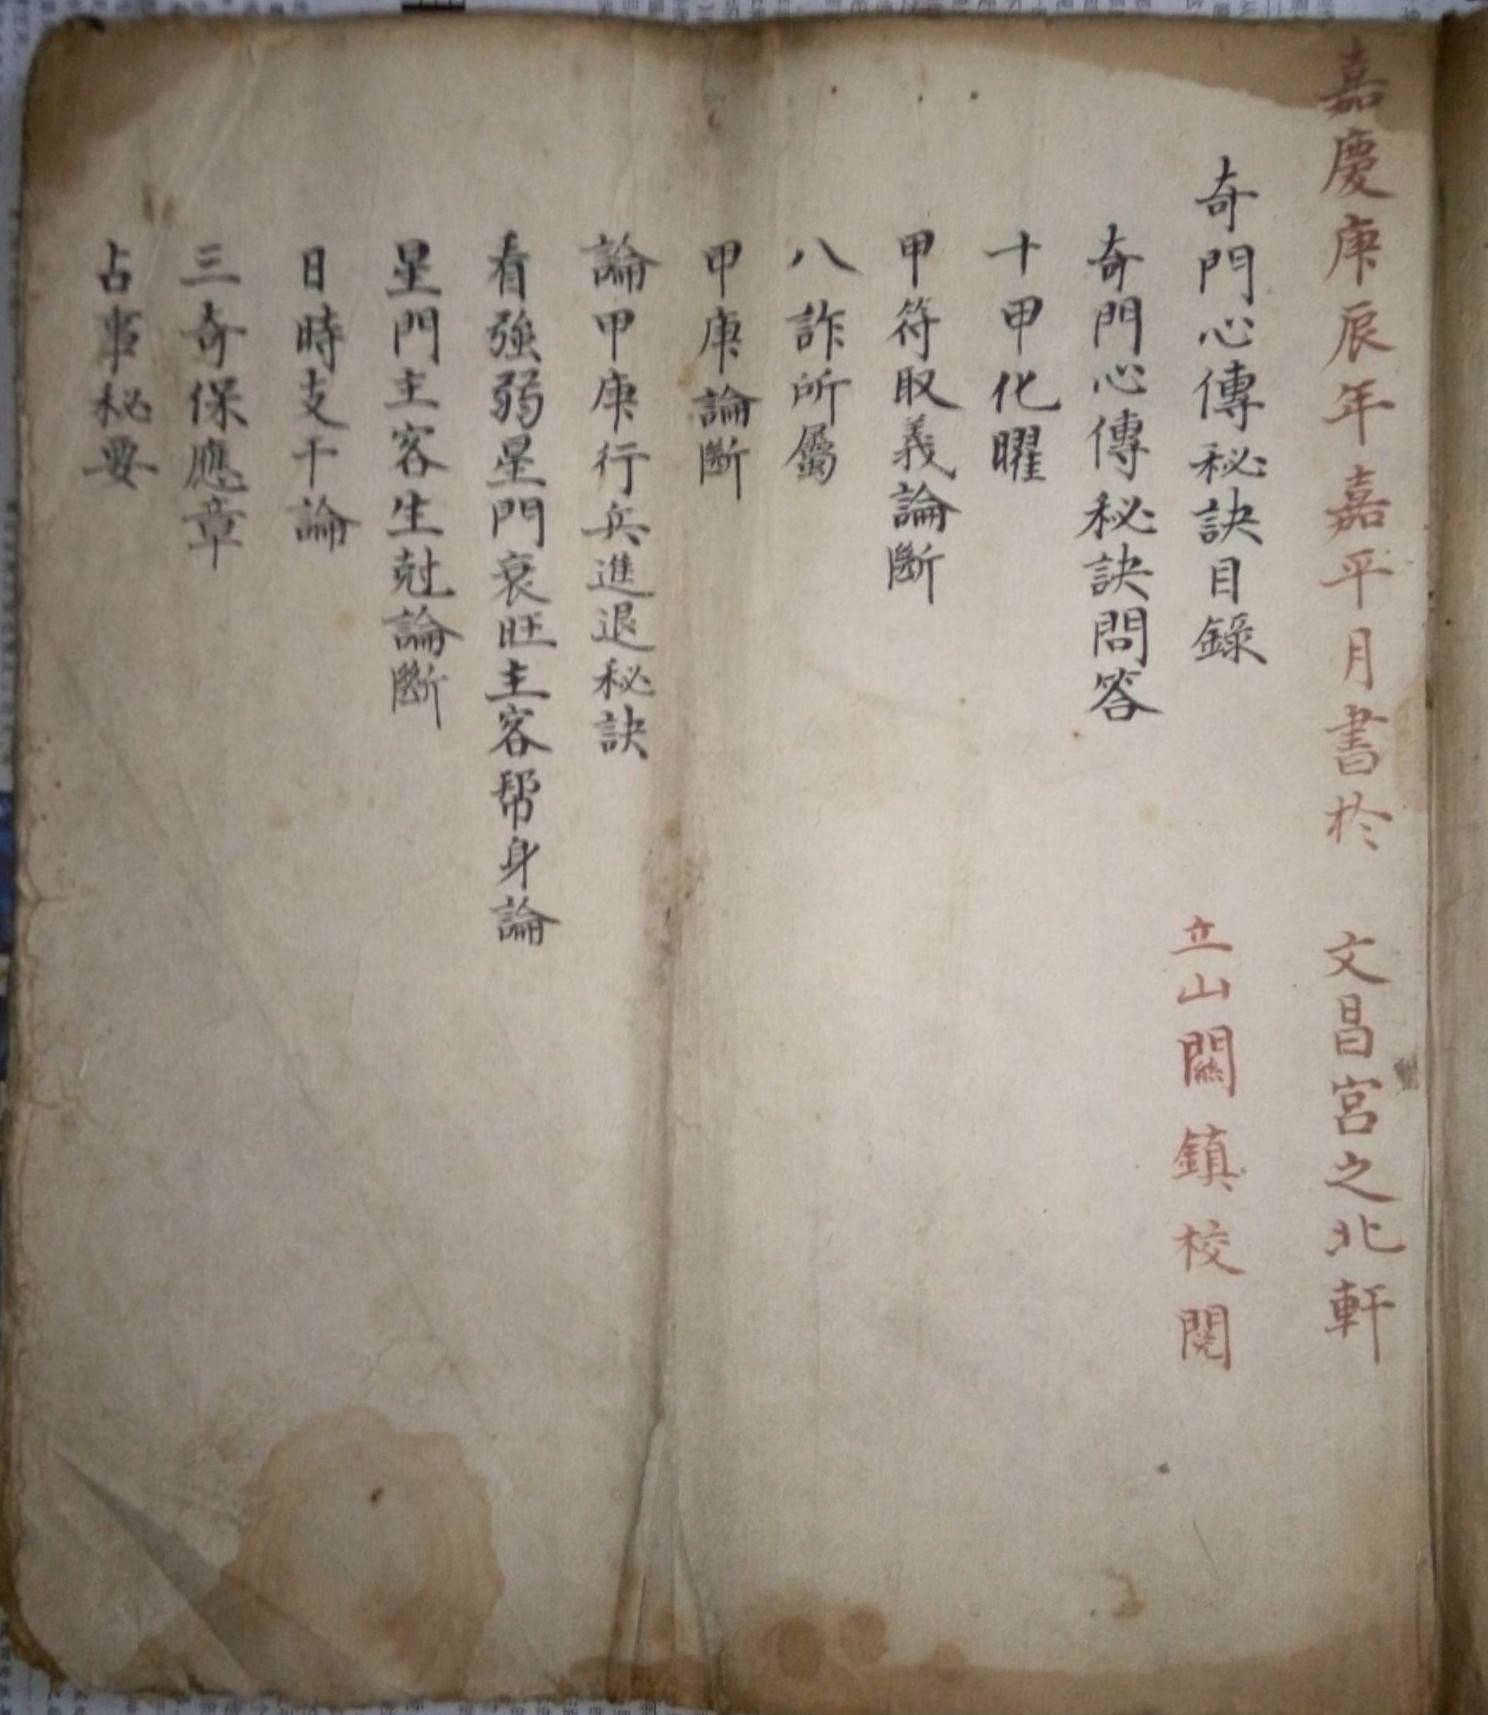 嘉慶庚辰年嘉平月書於 文昌宮之北軒
立山關鎮校閱
奇門心傳秘訣目錄
奇門心傳秘訣問答
十甲化曜
甲符取義論斷
八詐所屬
甲庚論斷
論甲庚行兵進退秘訣
看強弱星門衰旺主客幇身論
星門主客生尅論斷
日時支干論
三奇保應章
占事秘要